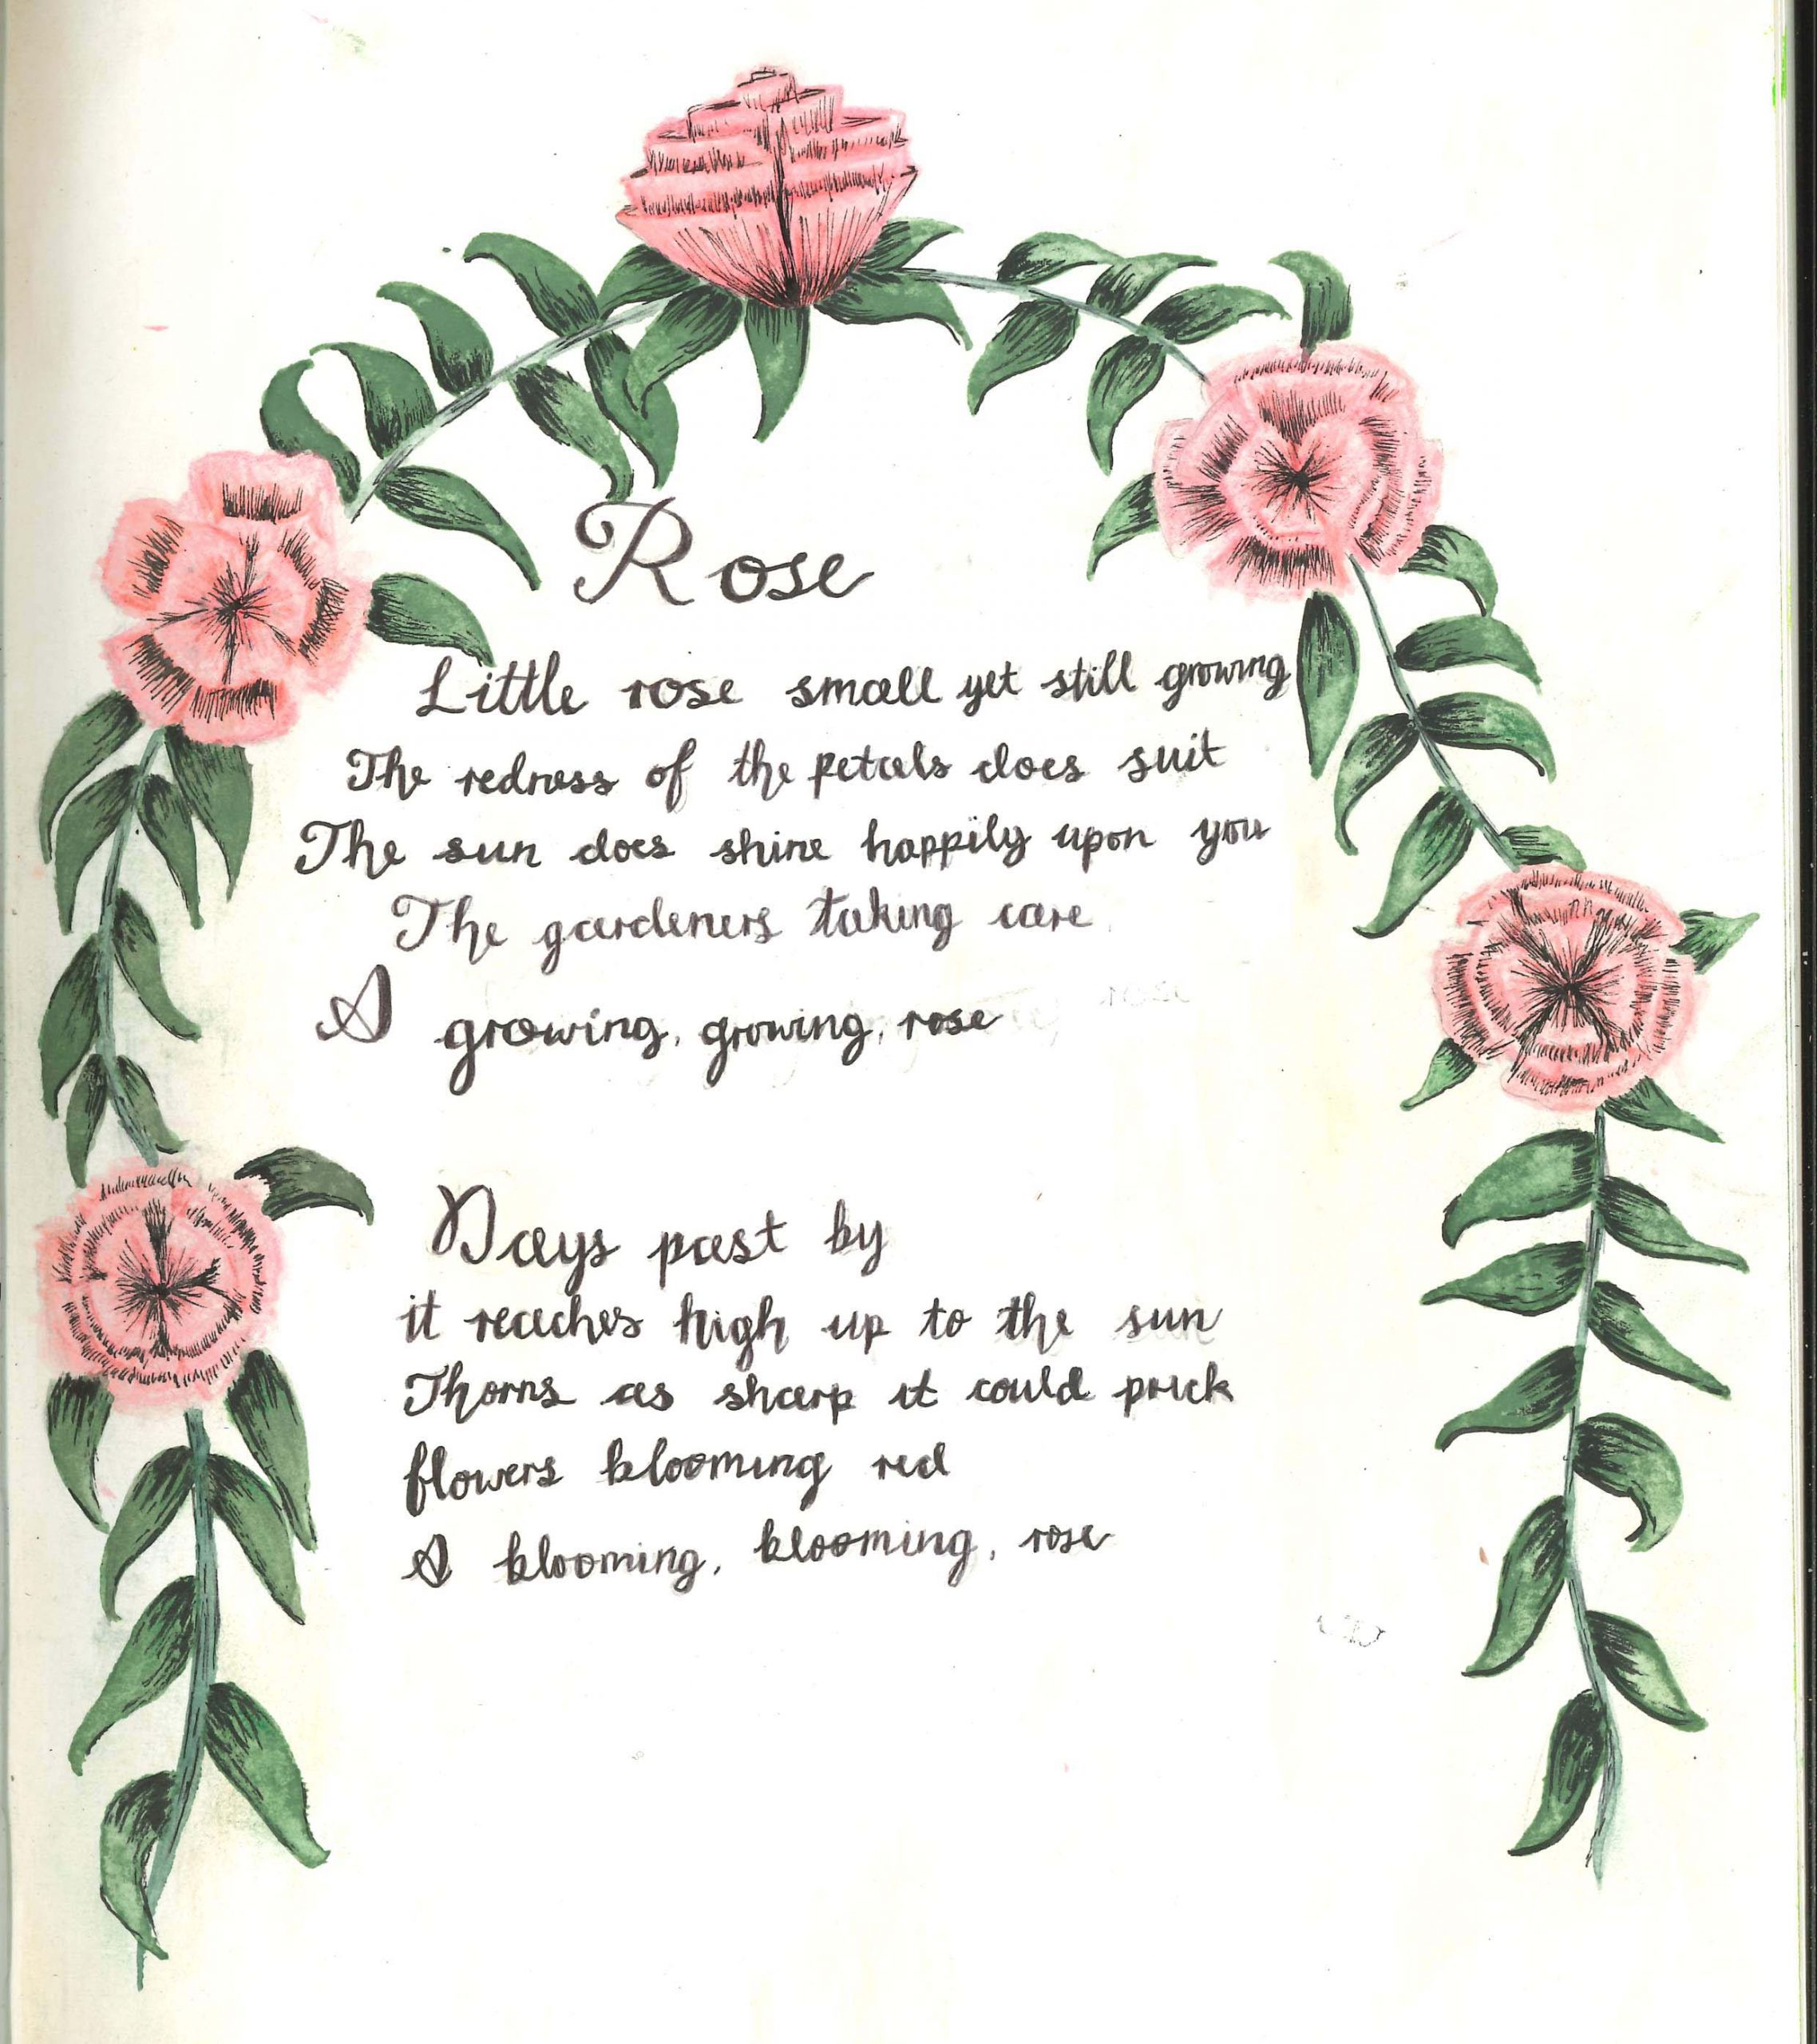 Rose
Little rose small yet still growing
The redness of the petals does suit
The sun does shine happily upon you
The gardeners taking care
A growing, growing, rose
Days past by
it reaches high up to the sun
Thorns as sharp it could prick
flowers blooming red
A blooming, blooming, rose